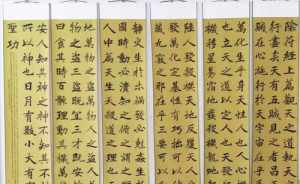 陰符經上篇觀天之道執天之
行盡矣天有五賊見之者昌五
賊在心施行於天宇宙在乎手
萬化生乎身天性人也人心機
也立天之道以定人也天發殺
機移星易宿地發殺機龍蛇起
陸人發殺機天地反覆天人合
發萬化定基性有巧拙可以伏
藏九竅之邪在乎三要可以動
靜火生於木禍發必剋姦生於
國時動必潰知之修之謂之聖
人中篇天生天殺道之理也天
地萬物之盜萬物人之盜人萬
物之盜三盜既宜三才既安故
曰食其時百骸理動其機萬化
安人知其神之神不知不神之
所以神也日月有數小大有定
聖功